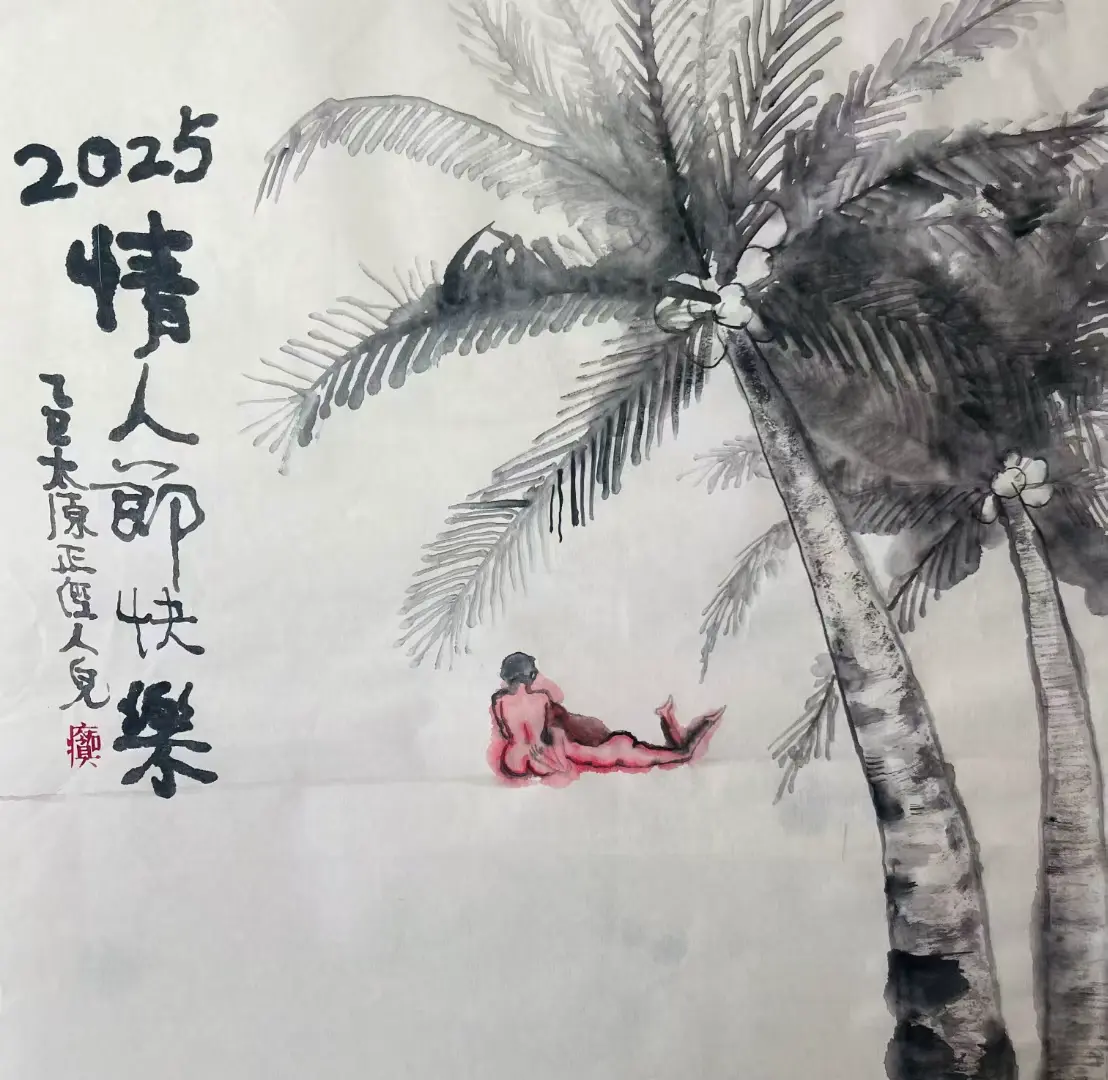 2025
情人節快樂
乙巳太原正經人兒